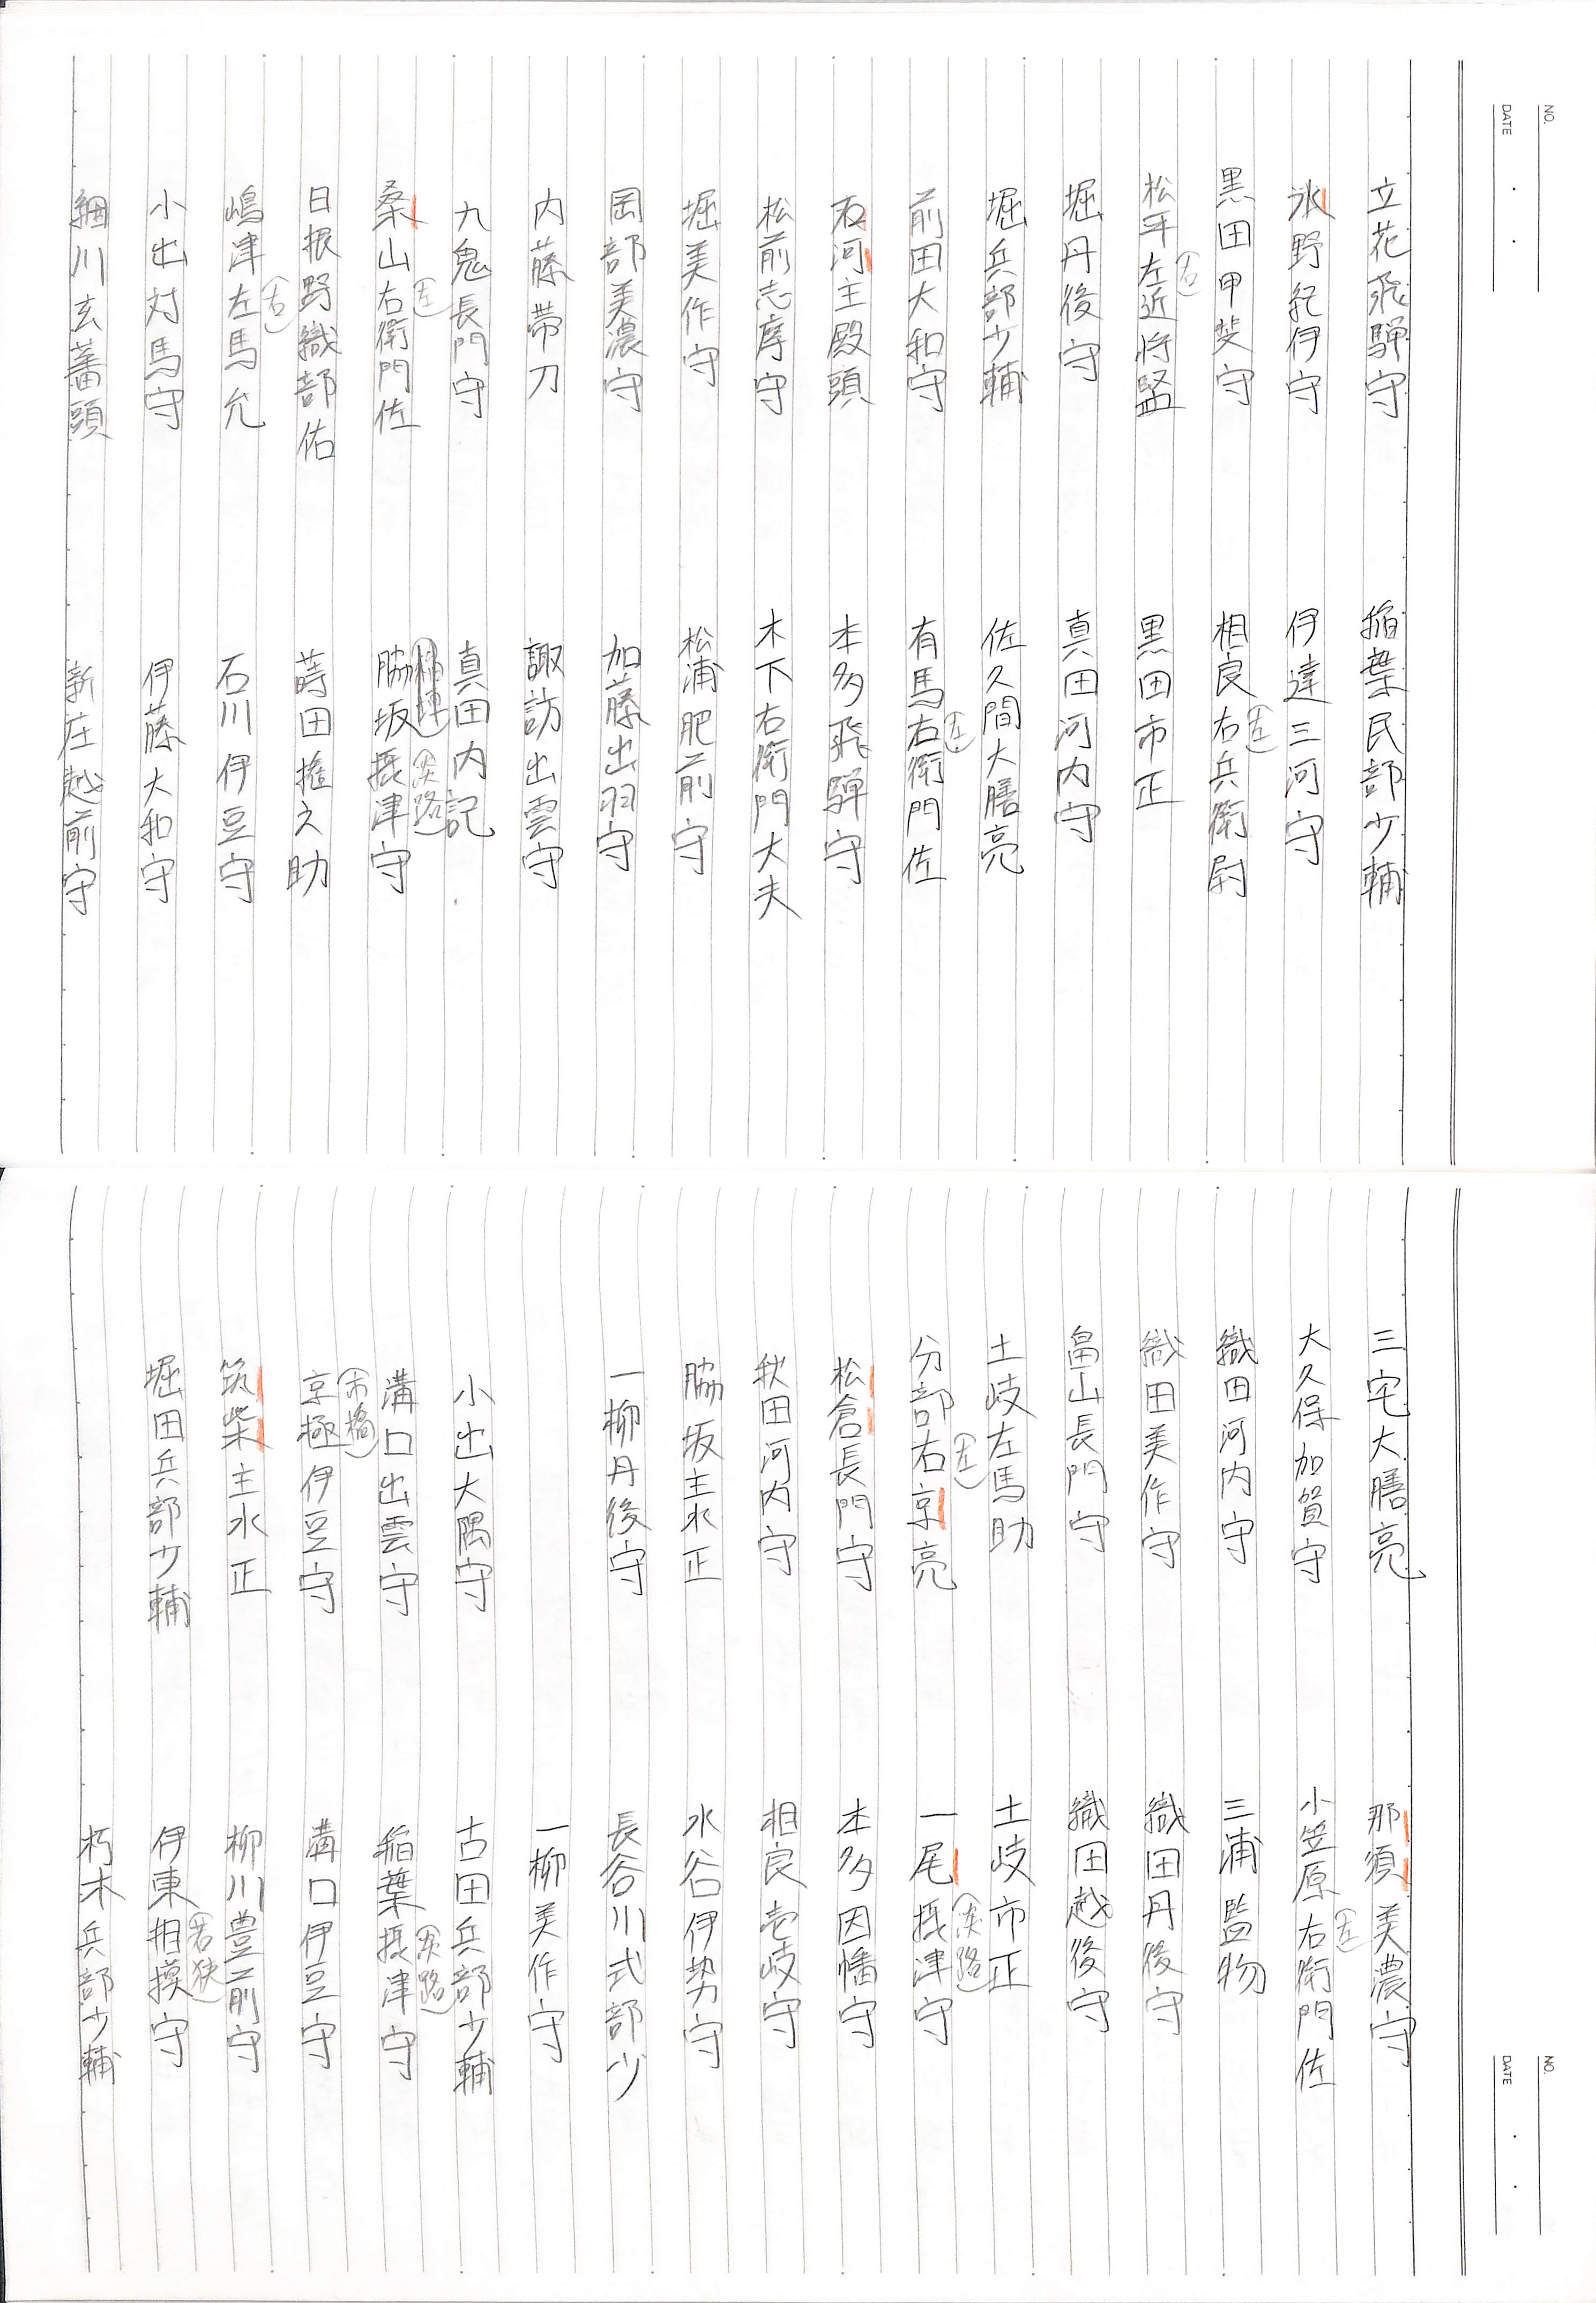 NO.
DATE
立花飛騨守
稲葉民部少輔
氷野紀伊守
伊達三河守
黒田甲斐守
相良右兵衛尉
(左)
松平左近将監
(右)
黒田市正
堀丹後守
真田河内守
堀兵部少輔
佐久間大膳亮
前田大和守
有馬右衛門佐
(左)
石河主殿頭
本多飛騨守
松前志摩守
木下右衛門大夫
堀美作守
松浦肥前守
岡部美濃守
加藤出羽守
内藤帯刀
諏訪出雲守
九鬼長門守
真田内記
桑山右衛門佐
(左)
脇坂摂津守
(淡路)
日根野織部佑
蒔田権之助
嶋津左馬允
(右)
石川伊豆守
小出対馬守
伊藤大和守
細川玄蕃頭
新庄越前守
NO.
DATE
三宅大膳亮
那須美濃守
大久保加賀守
小笠原右衛門佐
(左)
織田河内守
三浦監物
織田美作守
織田丹後守
畠山長門守
織田越後守
土岐左馬助
土岐市正
分部右京亮
(左)
一尾摂津守
(淡路)
松倉長門守
本多因幡守
秋田河内守
相良壱岐守
脇坂主水正
水谷伊勢守
一柳丹後守
長谷川式部少
一柳美作守
小出大隅守
古田兵部少輔
溝口出雲守
稲葉摂津守
(淡路)
京極伊豆守
(市橋)
溝口伊豆守
筑柴主水正
柳川豊前守
堀田兵部少輔
伊東相模守
(若狭)
朽木兵部少輔